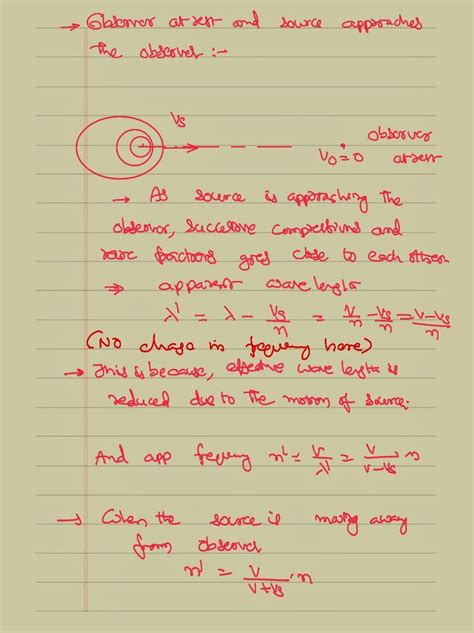 → Observer at rest and source approaches
the observer :-
Vs
observer
V₀ = 0 at rest
→ As source is approaching the
observer, successive compressions and
rare fractions goes close to each other.
⇒ apparent wave length
λ' = λ - Vs/n = V/n - Vs/n = V-Vs/n
(No change in frequency here)
→ This is because, effective wave length is
reduced due to the motion of source.
And app frequency n' = V/λ' = V/V-Vs n
→ When the source is moving away
from observer
n' = V/V+Vs . n